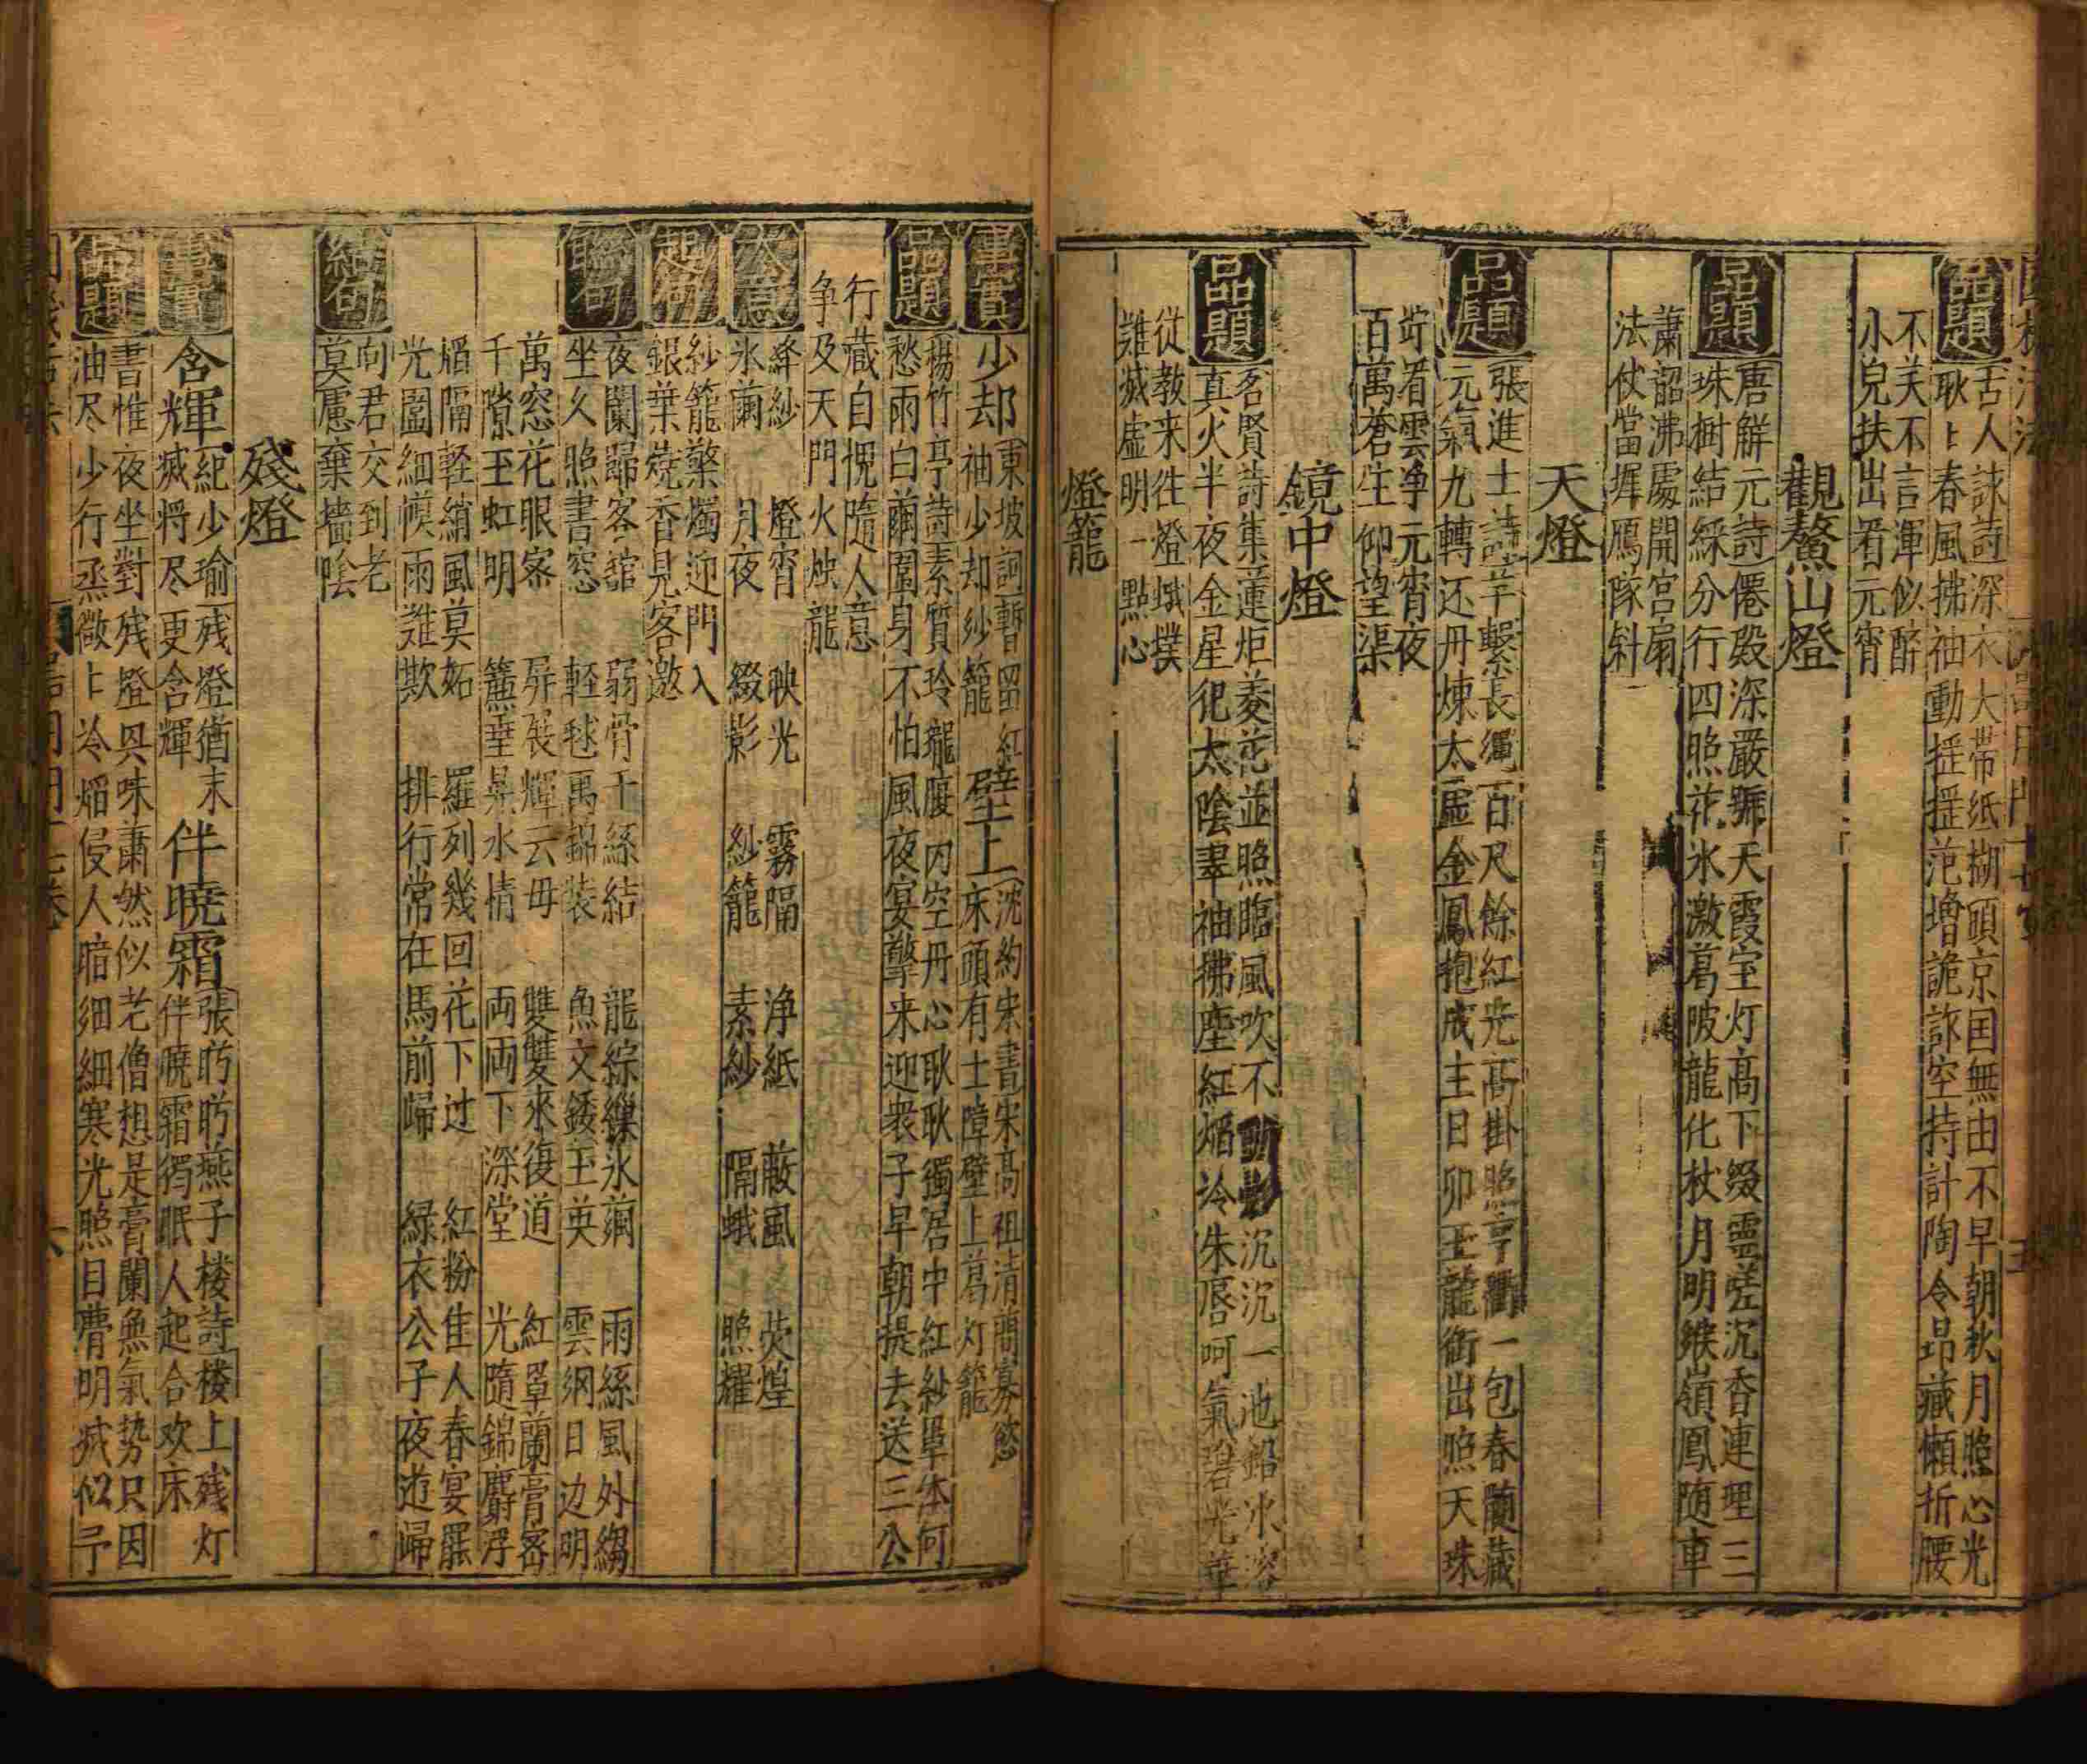 品題
古人詠詩深衣大帶紙糊頭京国無由不早朝秋月照心光
耿卜春風拂袖動揺揺范增詭詐空持計陶令昂藏懶折腰
不笑不言渾似醉
小兒扶出看元宵
觀鰲山燈
品題
唐解元詩僊殿深嚴號天霞室灯高下綴靈嵯沉香連理三
珠樹結綵分行四照花氷激葛陂龍化杖月明緱嶺鳳随車
蕭韶沸處開宮扇
法仗當墀鴈隊斜
天燈
品題
張進士詩竿繫長繩百尺餘紅光高掛照亨衢一包春髄藏
元氣九轉还丹煉太虛金鳳抱成主日卯玉龍銜出照天珠
竚看雲淨元宵夜
百萬蒼生仰望渠
鏡中燈
品題
名賢詩集蓮炬菱花並照臨風吹不動影沉沉一池鉛水溶
真火半夜金星犯太陰翠袖拂塵紅焰冷朱唇呵氣碧光華
從教来往燈蛾撲
難滅虛明一點心
燈籠
事實
少却
東坡詞暫留紅
袖少却紗籠
壁上
沈約宋書宋高祖清簡寡慾
床頭有土障壁上葛灯籠
品題
楊竹亭詩素質玲瓏腹内空丹心耿耿獨居中紅紗罩体何
愁雨白繭圍身不怕風夜宴擎来迎衆子早朝提去送三公
行藏自挸隨人意
争及天門火燭龍
大意
絳紗 燈宵 映光 霧隔 浄紙 蔽風 荧煌
氷繭 月夜 綴影 紗籠 素紗 隔蛾 照耀
起句
紗籠擎燭迎門入
銀葉燒香見客邀
聯句
夜闌歸客舘 弱骨千絲結 龍綜繅氷繭 雨絲風外縐
坐久照書窓 軽毬萬錦装 魚文錗玉英 雲網日边明
萬窓花眼宻 屏展輝云母 雙雙來復道 紅罩蘭膏宻
千隙玉虹明 簾垂㬎水情 両両下深堂 光隨錦麝浮
焰隔軽綃風莫妬 羅列幾回花下过 紅粉隹人春宴罷
光圍細幙雨難欺 排行常在馬前歸 緑衣公子夜遊歸
結句
向君交到老
莫慮棄墻陰
殘燈
事實
含輝
紀少瑜残燈猶未
滅将尽更含輝
伴曉霜
張昉昉燕子楼詩楼上残灯
伴曉霜獨眠人起合欢床
品題
書惟夜坐對残燈具味蕭然似老僧想是膏闌無氣势只因
油尽少行烝微卜冷焰侵人暗細細寒光照目瞢明滅似予